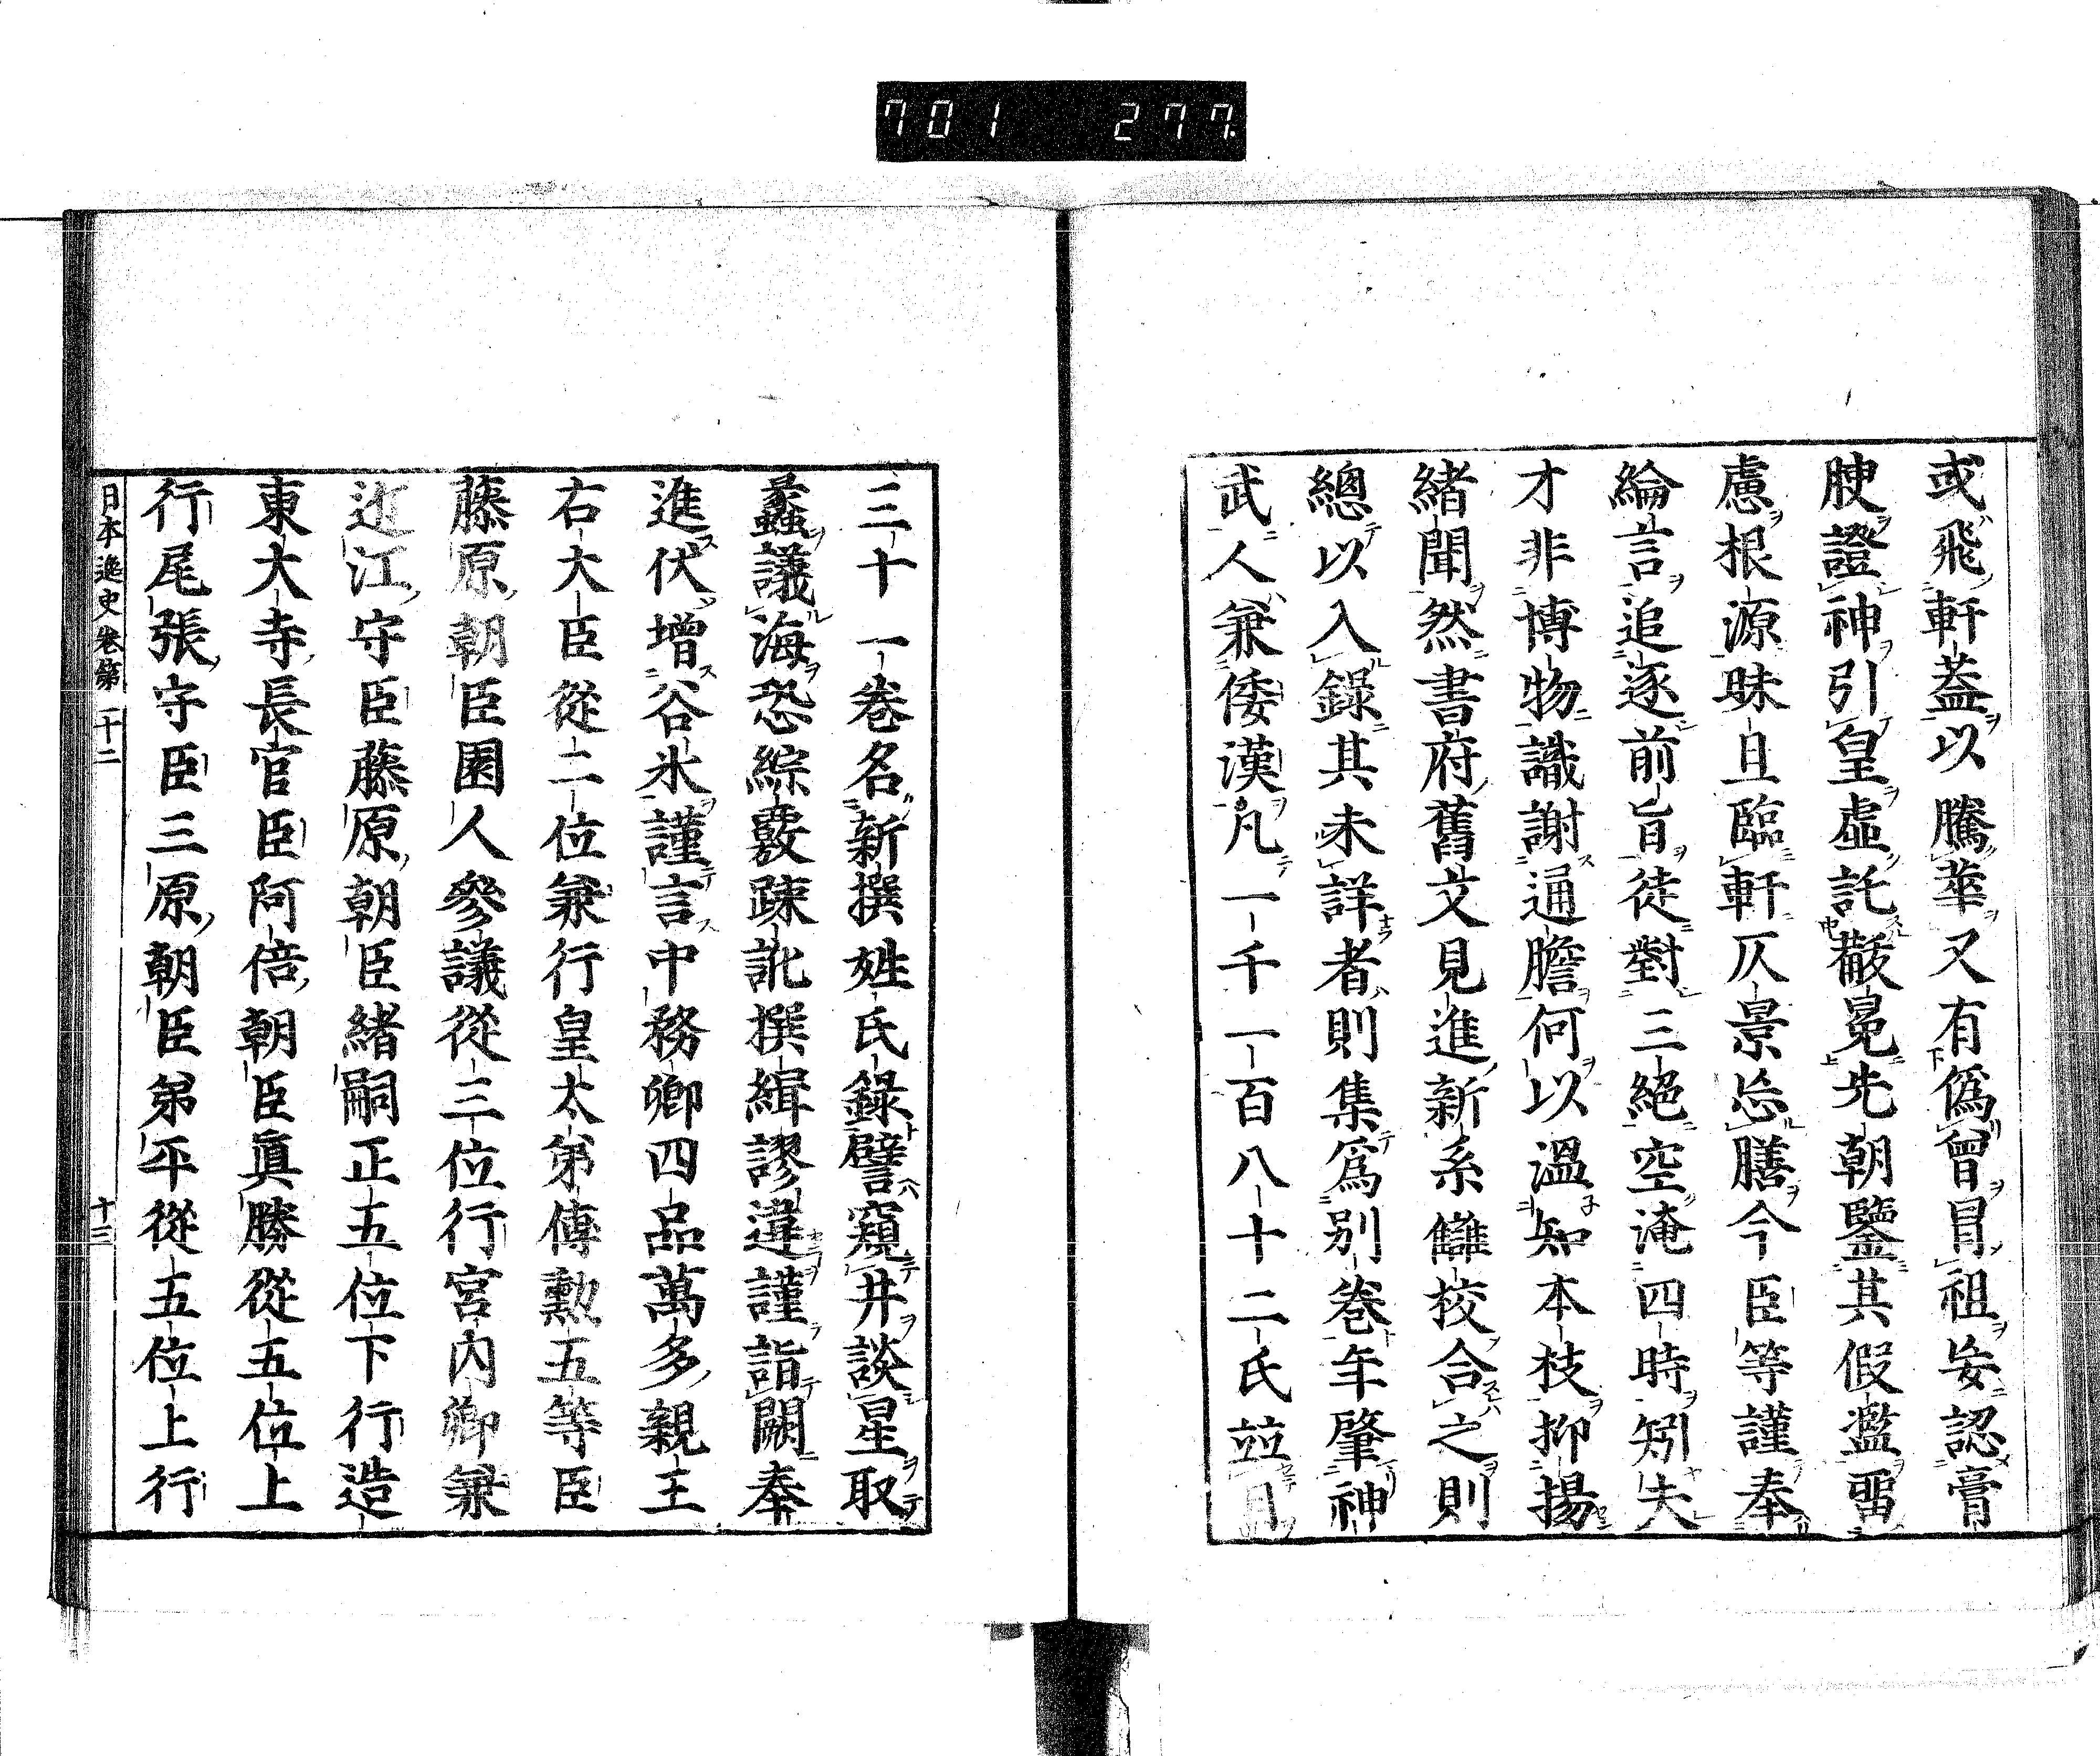 701 277
或飛軒蓋以騰華又有僞曾冒祖妄認膏
腴證神引皇虛託黻冕先朝鑒其假濫畱
慮根源昧旦臨軒仄景忘膳今臣等謹奉
綸言追逐前旨徒對三絕空淹四時矧夫
才非博物識謝通膽何以溫知本枝抑揚
緖聞然書府舊文見進新系讎校合之則
總以入錄其未詳者則集爲別卷年肇神
武人兼倭漢凡一千一百八十二氏竝目
三十一卷名新撰姓氏錄譬窺井談星取
蠡議海恐綜覈疎訛撰緝謬違謹詣闕奉
進伏增谷氷謹言中務卿四品萬多親王
右大臣從二位兼行皇太弟傅勲五等臣
藤原朝臣園人參議從三位行宮內卿兼
近江守臣藤原朝臣緖嗣正五位下行造
東大寺長官臣阿倍朝臣眞勝從五位上
行尾張守臣三原朝臣弟平從五位上行
日本逸史卷第二十二 十三